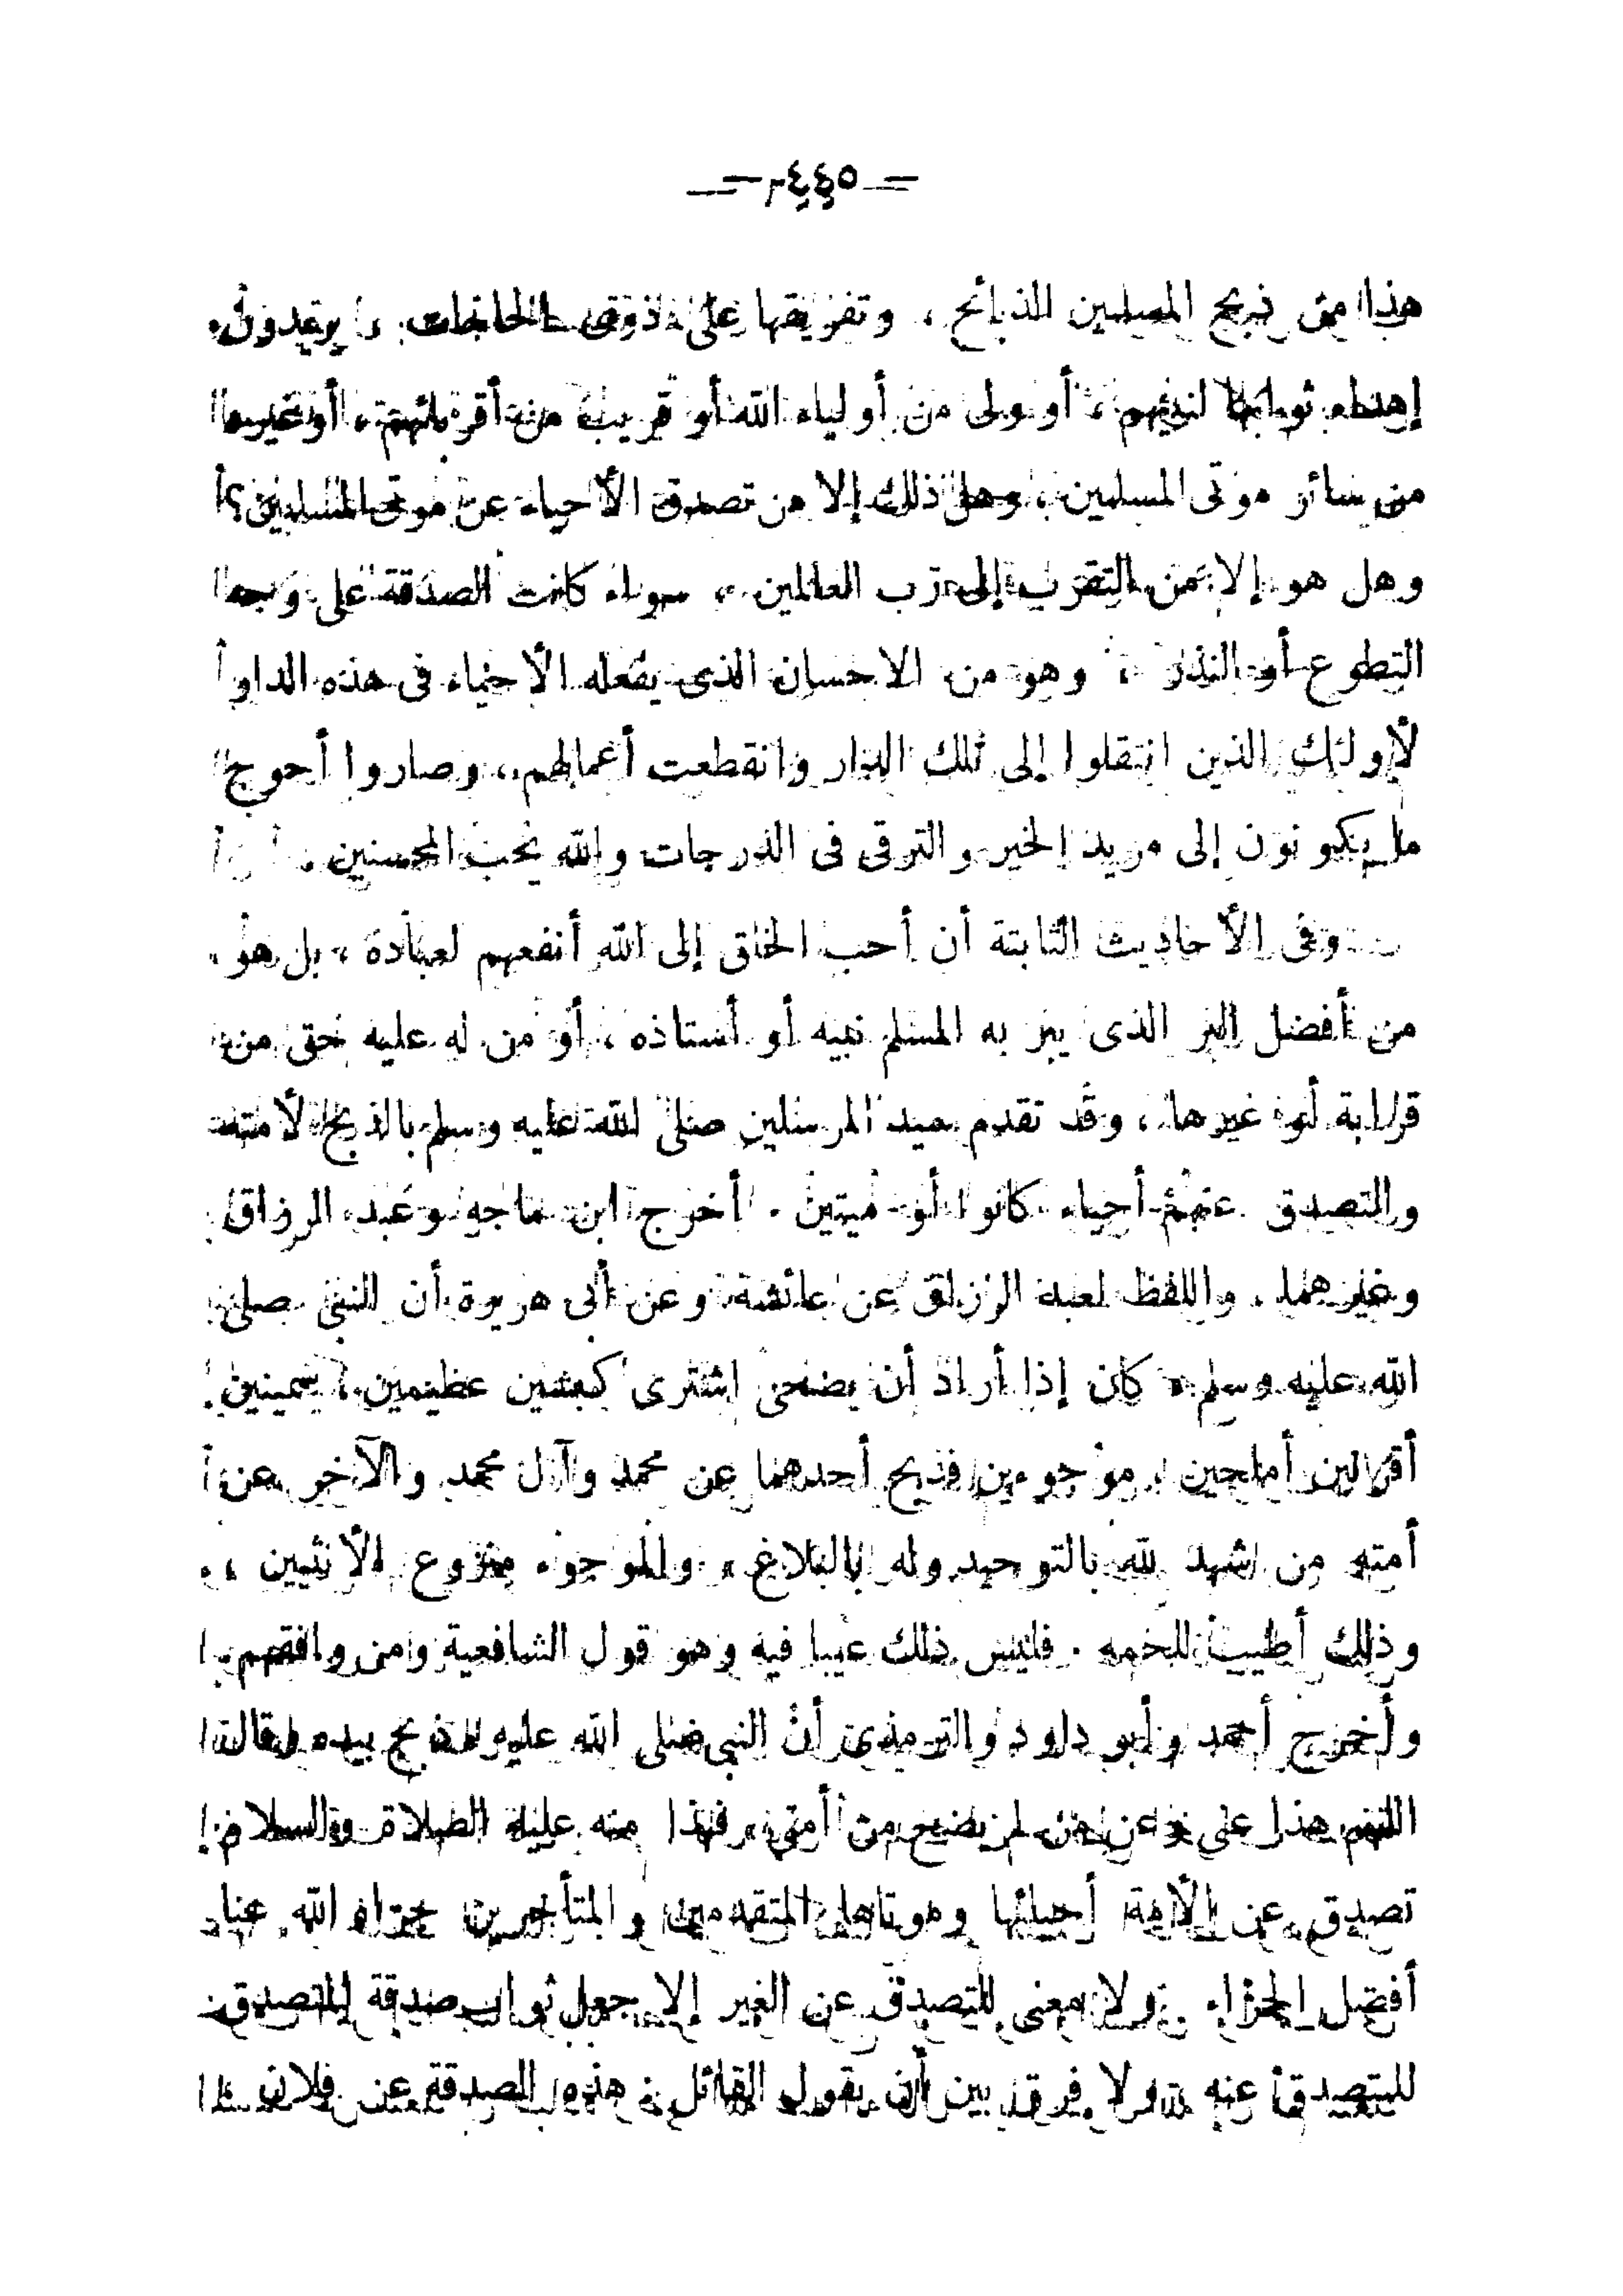 — ٤٤٥ —
هذا من ذبح المسلمين الذبائح ، وتفريقها على ذوى الحاجات ، يريدون
إهداء ثوابها لنبيهم ، أو ولى من أولياء الله أو قريب من أقربائهم ، أو غيرها
من سائر موتى المسلمين ، وهل ذلك إلا من تصدق الأحياء عن موتى المسلمين ؟
وهل هو إلا من التقرب إلى رب العالمين ، سواء كانت الصدقة على وجه
التطوع أو النذر ، وهو من الاحسان الذى يفعله الأحياء فى هذه الدار
لأولئك الذين انتقلوا إلى تلك الدار وانقطعت أعمالهم ، وصاروا أحوج
ما يكونون إلى مزيد الخير والترقى فى الدرجات والله يحب المحسنين .
وفى الأحاديث الثابتة أن أحب الخلق إلى الله أنفعهم لعباده ، بل هو
من أفضل البر الذى يبر به المسلم نبيه أو أستاذه ، أو من له عليه حق من
قرابة أو غيرها ، وقد تقدم سيد المرسلين صلى الله عليه وسلم بالذبح لأمته
والتصدق عنهم أحياء كانوا أو ميتين . أخرج ابن ماجه وعبد الرزاق
وغيرهما . واللفظ لعبد الرزاق عن عائشة وعن أبى هريرة أن النبى صلى
الله عليه وسلم « كان إذا أراد أن يضحى اشترى كبشين عظيمين ، سمينين
أقرنين أملحين ، موجوءين فذبح أحدهما عن محمد وآل محمد والآخر عن
أمته من شهد لله بالتوحيد وله بالبلاغ » والموجوء منزوع الأنثيين ،
وذلك أطيب للحمه . فليس ذلك عيبا فيه وهو قول الشافعية ومن وافقهم
وأخرج أحمد وأبو داود والترمذى أن النبى صلى الله عليه ذبح بيده وقال
اللهم هذا عنى وعن من لم يضح من أمتى ، فهذا منه عليه الصلاة والسلام
تصدق عن الأمة أحيائها وموتاها المتقدمين والمتأخرين جزاه الله عنا
أفضل الجزاء . ولا معنى للتصدق عن الغير إلا جعل ثواب صدقة المتصدق
للمتصدق عنه ولا فرق بين أن يقول القائل : هذه الصدقة عن فلان